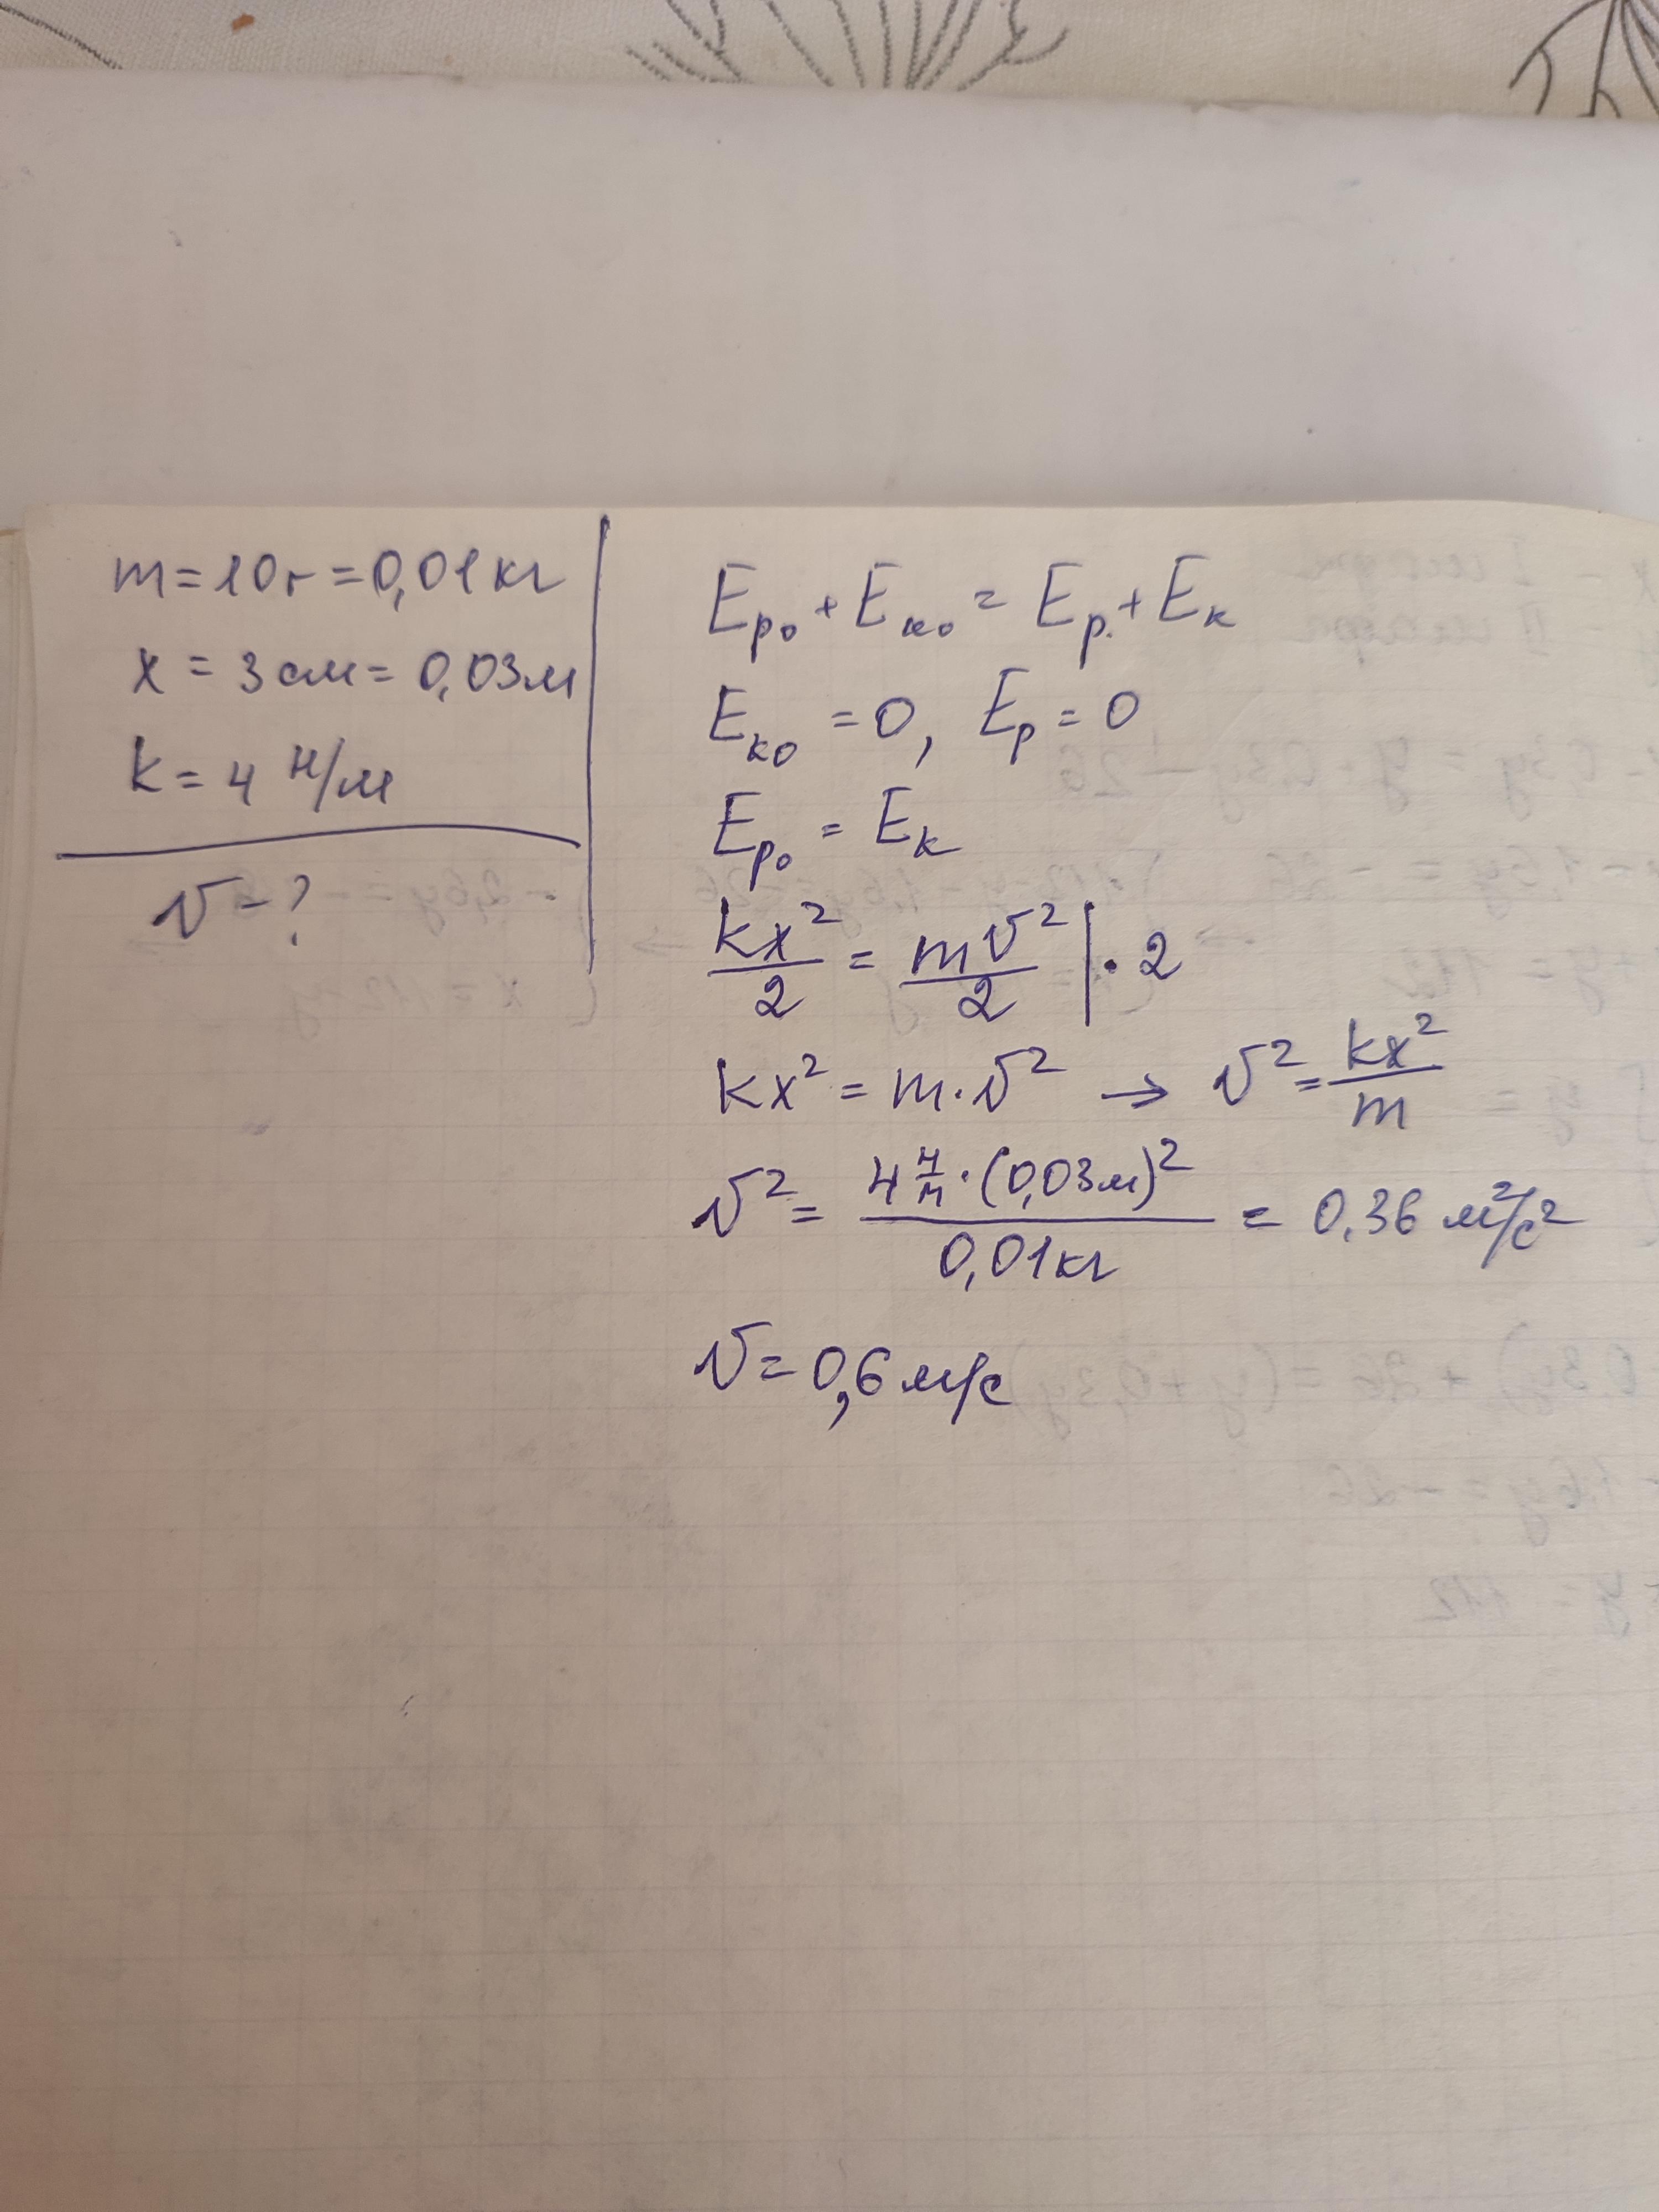 m=10г=0,01кг
x=3см=0,03м
k=4 Н/м
v-?
Eр₀+Eк₀=Eр+Eк
Eк₀=0, Eр=0
Eр₀=Eк
kx²/2=mv²/2 |·2
kx²=m·v² → v²=kx²/m
v²=4 Н/м·(0,03м)²/0,01кг=0,36 м²/с²
v=0,6 м/с